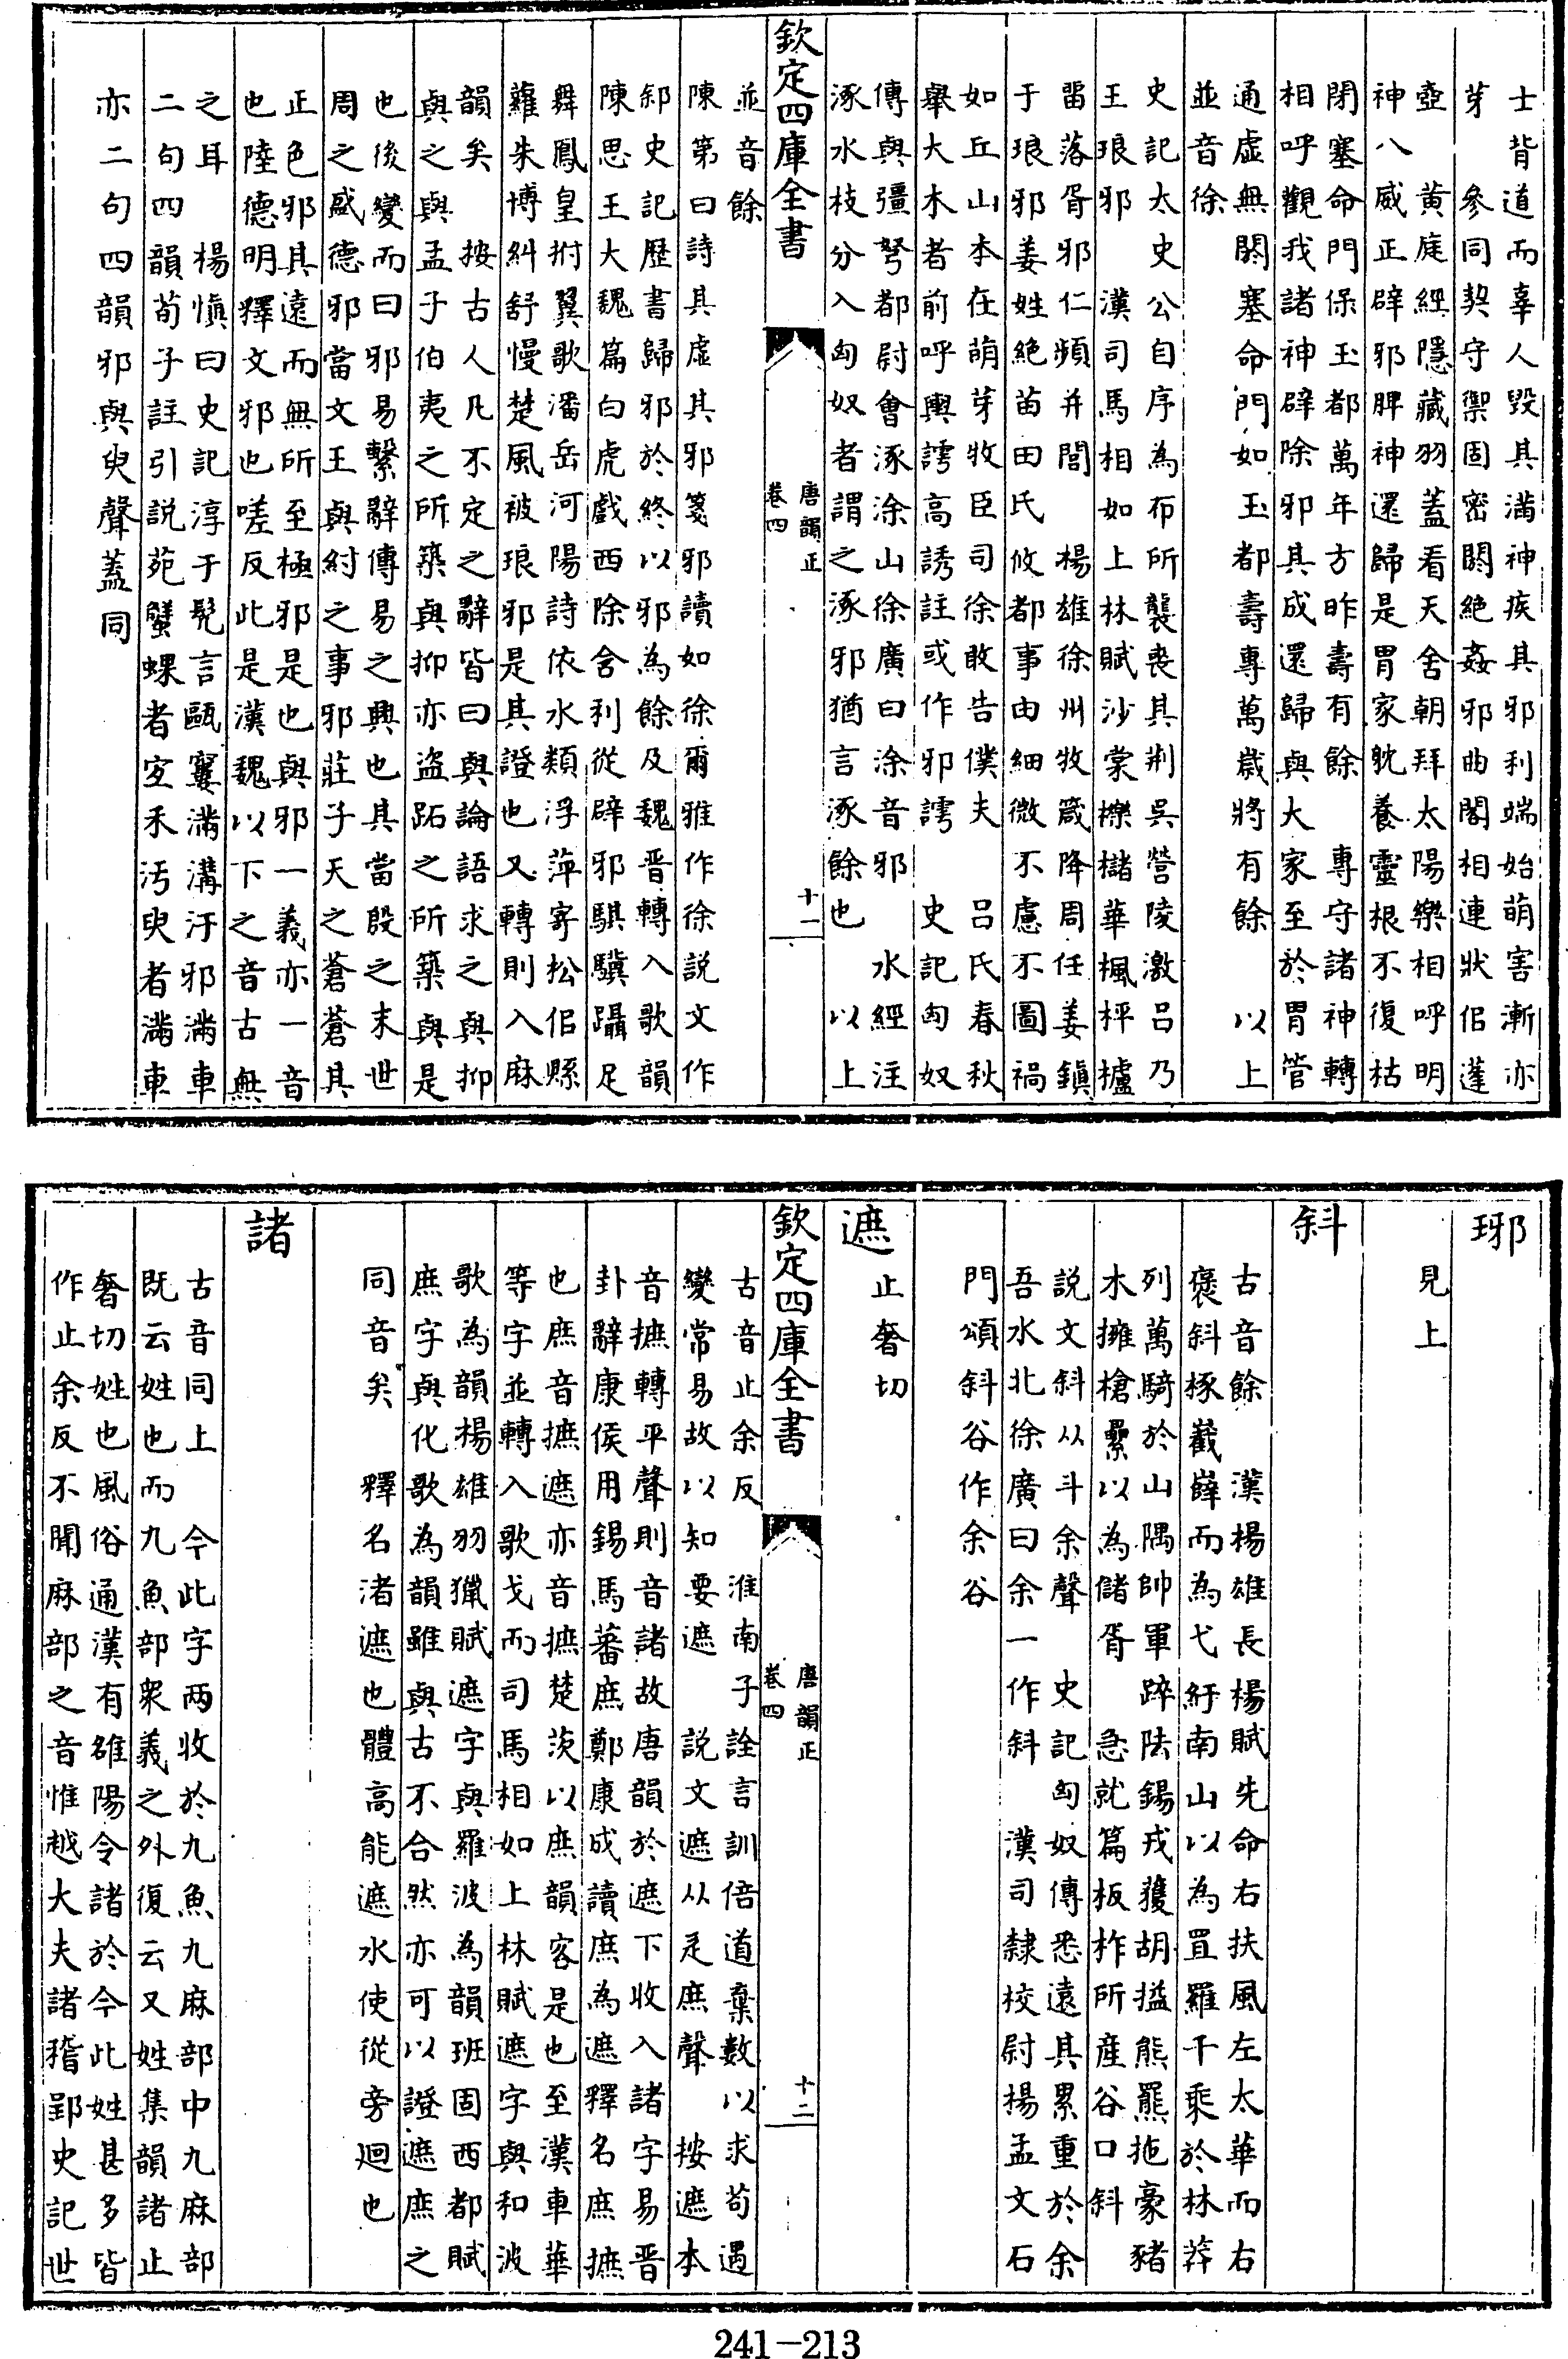 士背道而辜人毀其滿神疾其邪利端始萌害漸亦
芽　參同契守禦固密閼絶姦邪曲閣相連狀佀蓬
壺　黃庭經隱藏羽蓋看天舍朝拜太陽樂相呼明
神八威正辟邪脾神還歸是胃家躭養靈根不復枯
閉塞命門保玉都萬年方昨壽有餘　專守諸神轉
相呼觀我諸神辟除邪其成還歸與大家至於胃管
通虛無閼塞命門如玉都壽專萬歲將有餘　以上
並音徐
史記太史公自序為布所襲喪其荆吳營陵激呂乃
王琅邪　漢司馬相如上林賦沙棠櫟櫧華楓枰櫨
畱落胥邪仁頻并閭　楊雄徐州牧箴降周任姜鎭
于琅邪姜姓絶苗田氏攸都事由細微不慮不圖禍
如丘山本在萌芽牧臣司徐敢告僕夫　呂氏春秋
舉大木者前呼輿謣高誘註或作邪謣　史記匈奴
傳與彊弩都尉會涿涂山徐廣曰涂音邪　水經注
涿水枝分入匈奴者謂之涿邪猶言涿餘也　以上
欽定四庫全書
唐韻正
卷四
十一
並音餘
陳第曰詩其虛其邪箋邪讀如徐爾雅作徐説文作
䣄史記歷書歸邪於終以邪為餘及魏晋轉入歌韻
陳思王大魏篇白虎戲西除舍利從辟邪騏驥躡足
舞鳳皇拊翼歌潘岳河陽詩依水類浮萍寄松佀縣
蘿朱博糾舒慢楚風被琅邪是其證也又轉則入麻
韻矣　按古人凡不定之辭皆曰與論語求之與抑
與之與孟子伯夷之所築與抑亦盜跖之所築與是
也後變而曰邪易繫辭傳易之興也其當殷之末世
周之盛德邪當文王與紂之事邪莊子天之蒼蒼其
正色邪其遠而無所至極邪是也與邪一義亦一音
也陸德明釋文邪也嗟反此是漢魏以下之音古無
之耳　楊愼曰史記淳于髠言甌窶滿溝汙邪滿車
二句四韻荀子註引説苑蟹螺者宜禾汚臾者滿車
亦二句四韻邪與臾聲蓋同
琊
見上
斜
古音餘　漢楊雄長楊賦先命右扶風左太華而右
褒斜椓嶻嶭而為弋紆南山以為罝羅千乘於林莽
列萬騎於山隅帥軍踤阹錫戎獲胡搤熊羆拖豪豬
木擁槍纍以為儲胥　急就篇板柞所産谷口斜
説文斜从斗余聲　史記匈奴傳悉遠其累重於余
吾水北徐廣曰余一作斜　漢司隷校尉楊孟文石
門頌斜谷作余谷
遮
止奢切
欽定四庫全書
唐韻正
卷四
十二
古音止余反　淮南子詮言訓倍道棄數以求苟遇
變常易故以知要遮　説文遮从辵庶聲　按遮本
音摭轉平聲則音諸故唐韻於遮下收入諸字易晋
卦辭康侯用錫馬蕃庶鄭康成讀庶為遮釋名庶摭
也庶音摭遮亦音摭楚茨以庶韻客是也至漢車華
等字並轉入歌戈而司馬相如上林賦遮字與和波
歌為韻楊雄羽獵賦遮字與羅波為韻班固西都賦
庶字與化歌為韻雖與古不合然亦可以證遮庶之
同音矣　釋名渚遮也體高能遮水使從旁迴也
諸
古音同上　今此字两收於九魚九麻部中九麻部
既云姓也而九魚部衆義之外復云又姓集韻諸止
奢切姓也風俗通漢有雒陽令諸於今此姓甚多皆
作止余反不聞麻部之音惟越大夫諸稽郢史記世
241-213